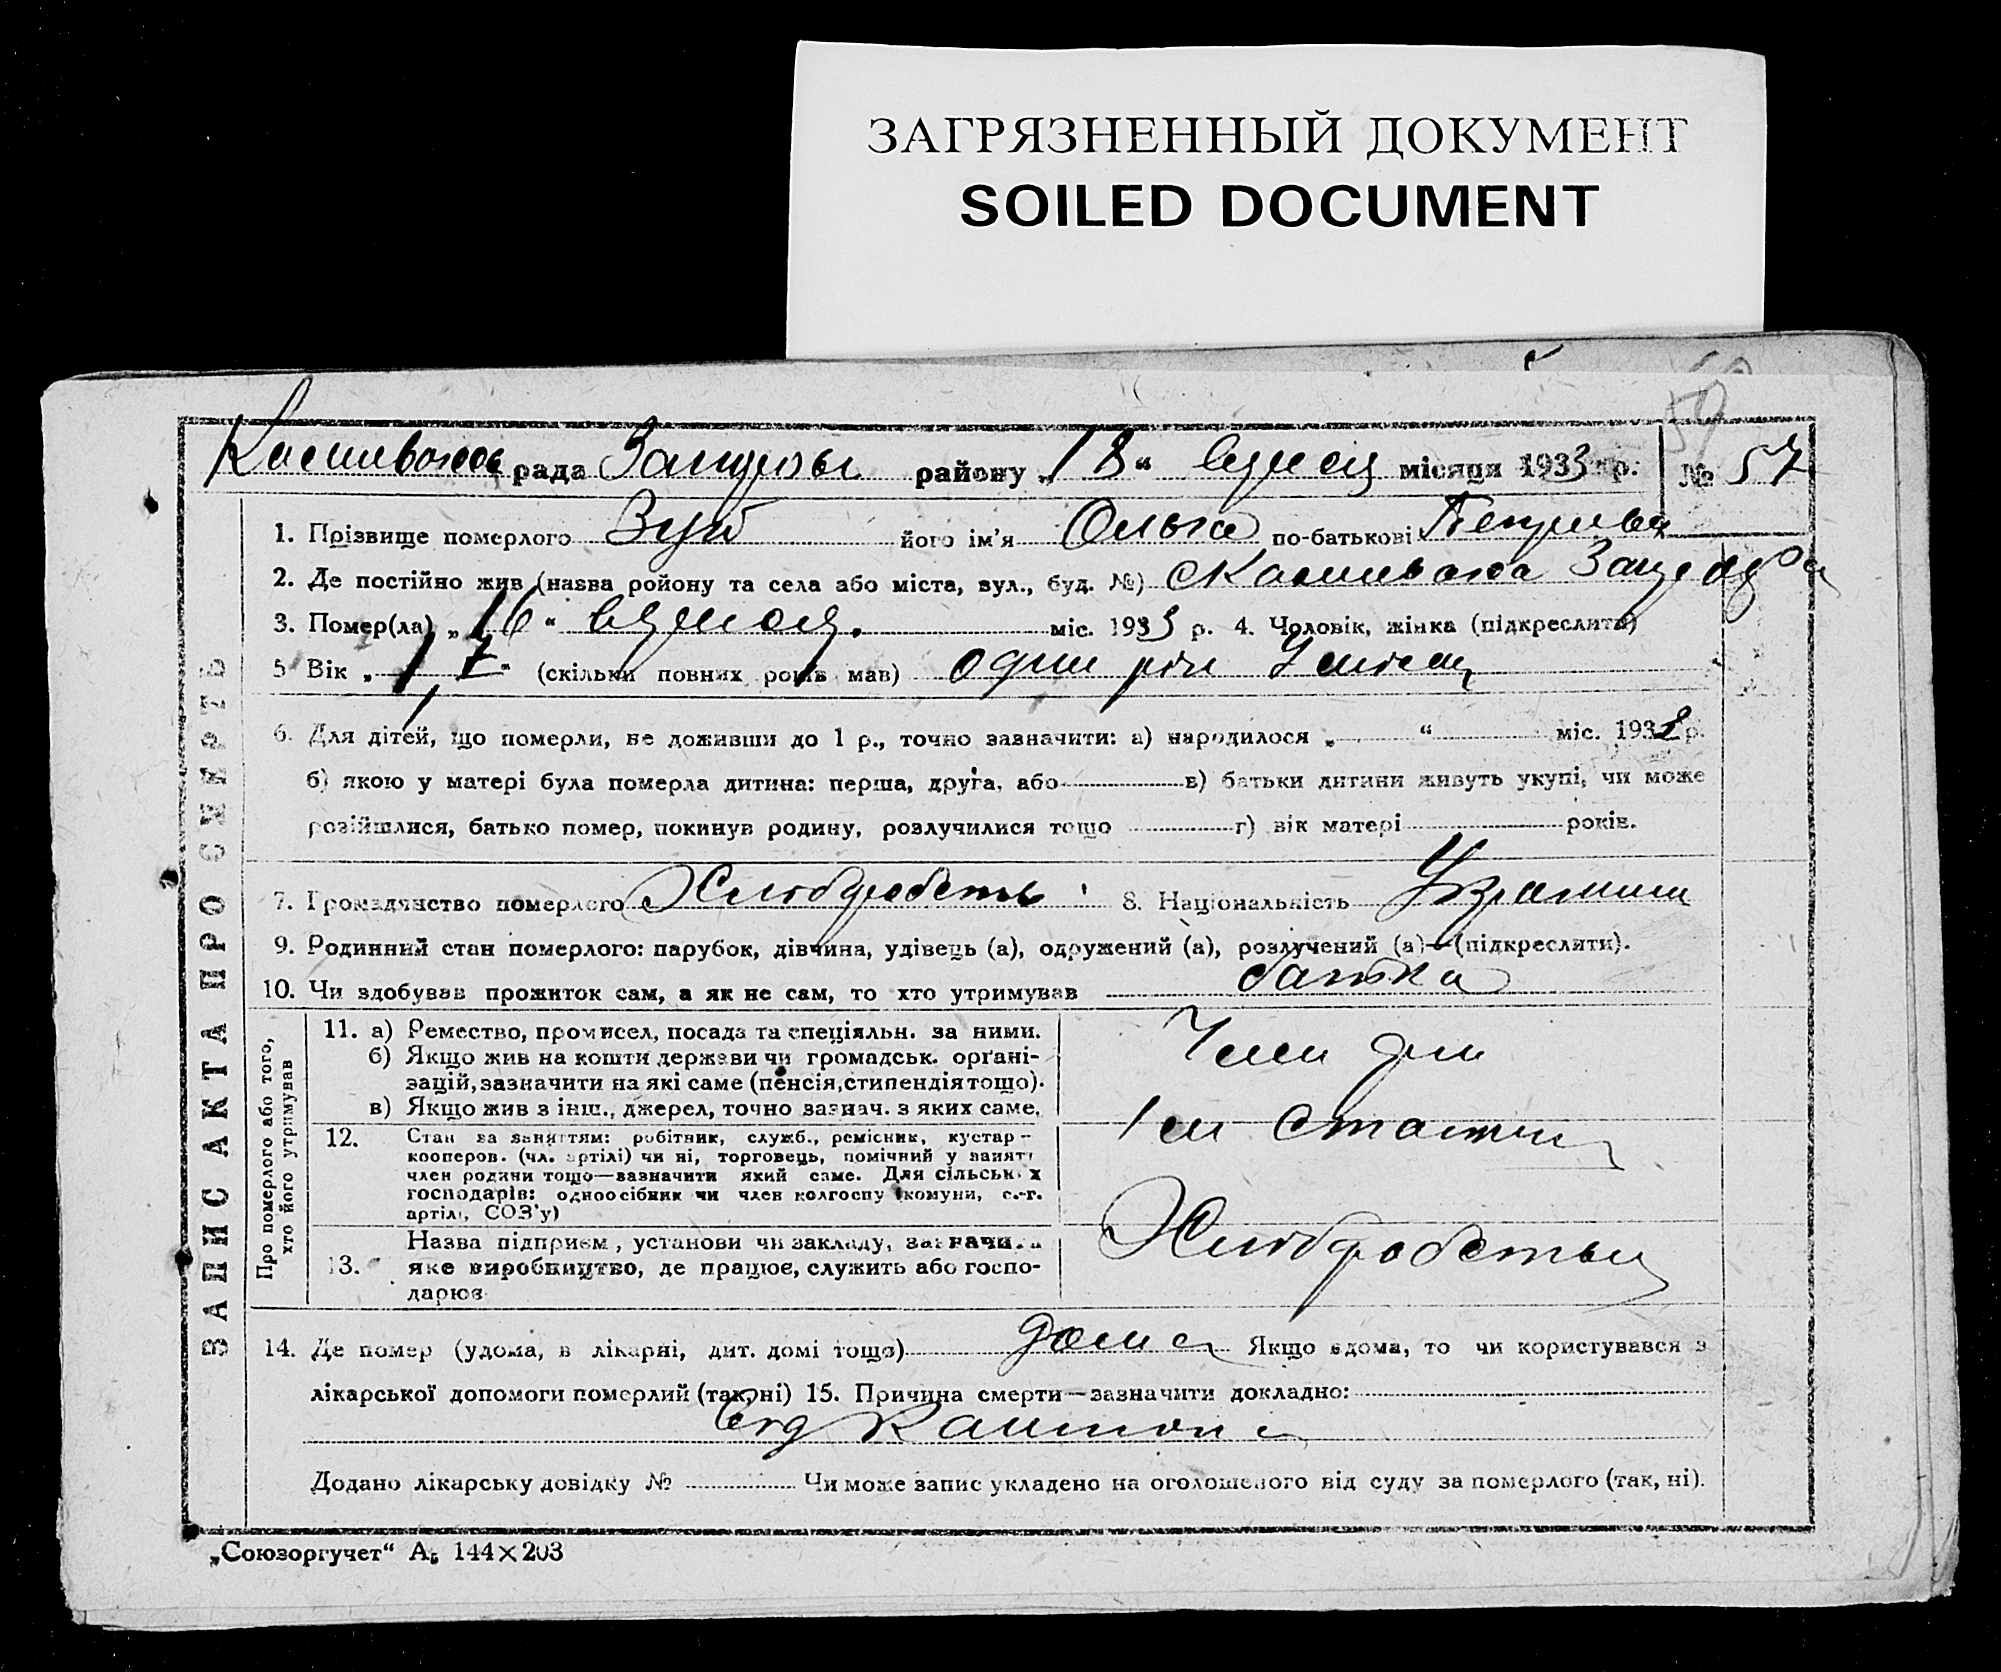 ЗАГРЯЗНЕННЫЙ ДОКУМЕНТ
SOILED DOCUMENT
59
рада району „18“ місяця 1933 р. № 57
1. Прізвище померлого Зуб його ім'я Ольга по-батькові
2. Де постійно жив (назва ройону та села або міста, вул., буд. №)
3. Помер(ла) „16“ міс. 1933 р. 4. Чоловік, жінка (підкреслити)
5 Вік „1,7“ (скільки повних років мав) один рік 7 місяц
6. Для дітей, що померли, не доживши до 1 р., точно зазначити: а) народилося „ “ міс. 193 р.
б) якою у матері була померла дитина: перша, друга, або в) батьки дитини живуть укупі, чи може
розійшлися, батько помер, покинув родину, розлучилися тощо г) вік матері років.
7. Громадянство померлого Хлібробств 8. Національність
9. Родинний стан померлого: парубок, дівчина, удівець (а), одружений (а), розлучений (а)—(підкреслити).
10. Чи здобував прожиток сам, а як не сам, то хто утримував батька
ЗАПИС АКТА ПРО СМЕРТЬ
Про померлого або того, хто його утримував
11. а) Ремество, промисел, посада та спеціяльн. за ними.
б) Якщо жив на кошти держави чи громадськ. орґані-
зацій, зазначити на які саме (пенсія, стипендія тощо).
в) Якщо жив з інш., джерел, точно зазнач. з яких саме.
12. Стан за заняттям: робітник, служб., ремісник, кустар-
кооперов. (чл. артілі) чи ні, торговець, помічний у занятт
член родини тощо—зазначити який саме. Для сільських
господарів: одноосібник чи член колгоспу (комуни, с.-г.
артілі, СОЗ'у)
13. Назва підприєм, установи чи закладу, зазначити
яке виробництво, де працює, служить або госпо-
дарює
14. Де помер (удома, в лікарні, дит. домі тощо) дома Якщо вдома, то чи користувався з
лікарської допомоги померлий (так, ні) 15. Причина смерти—зазначити докладно:
Додано лікарську довідку № Чи може запис укладено на оголошеного від суду за померлого (так, ні).
„Союзоргучет“ А5 144×203